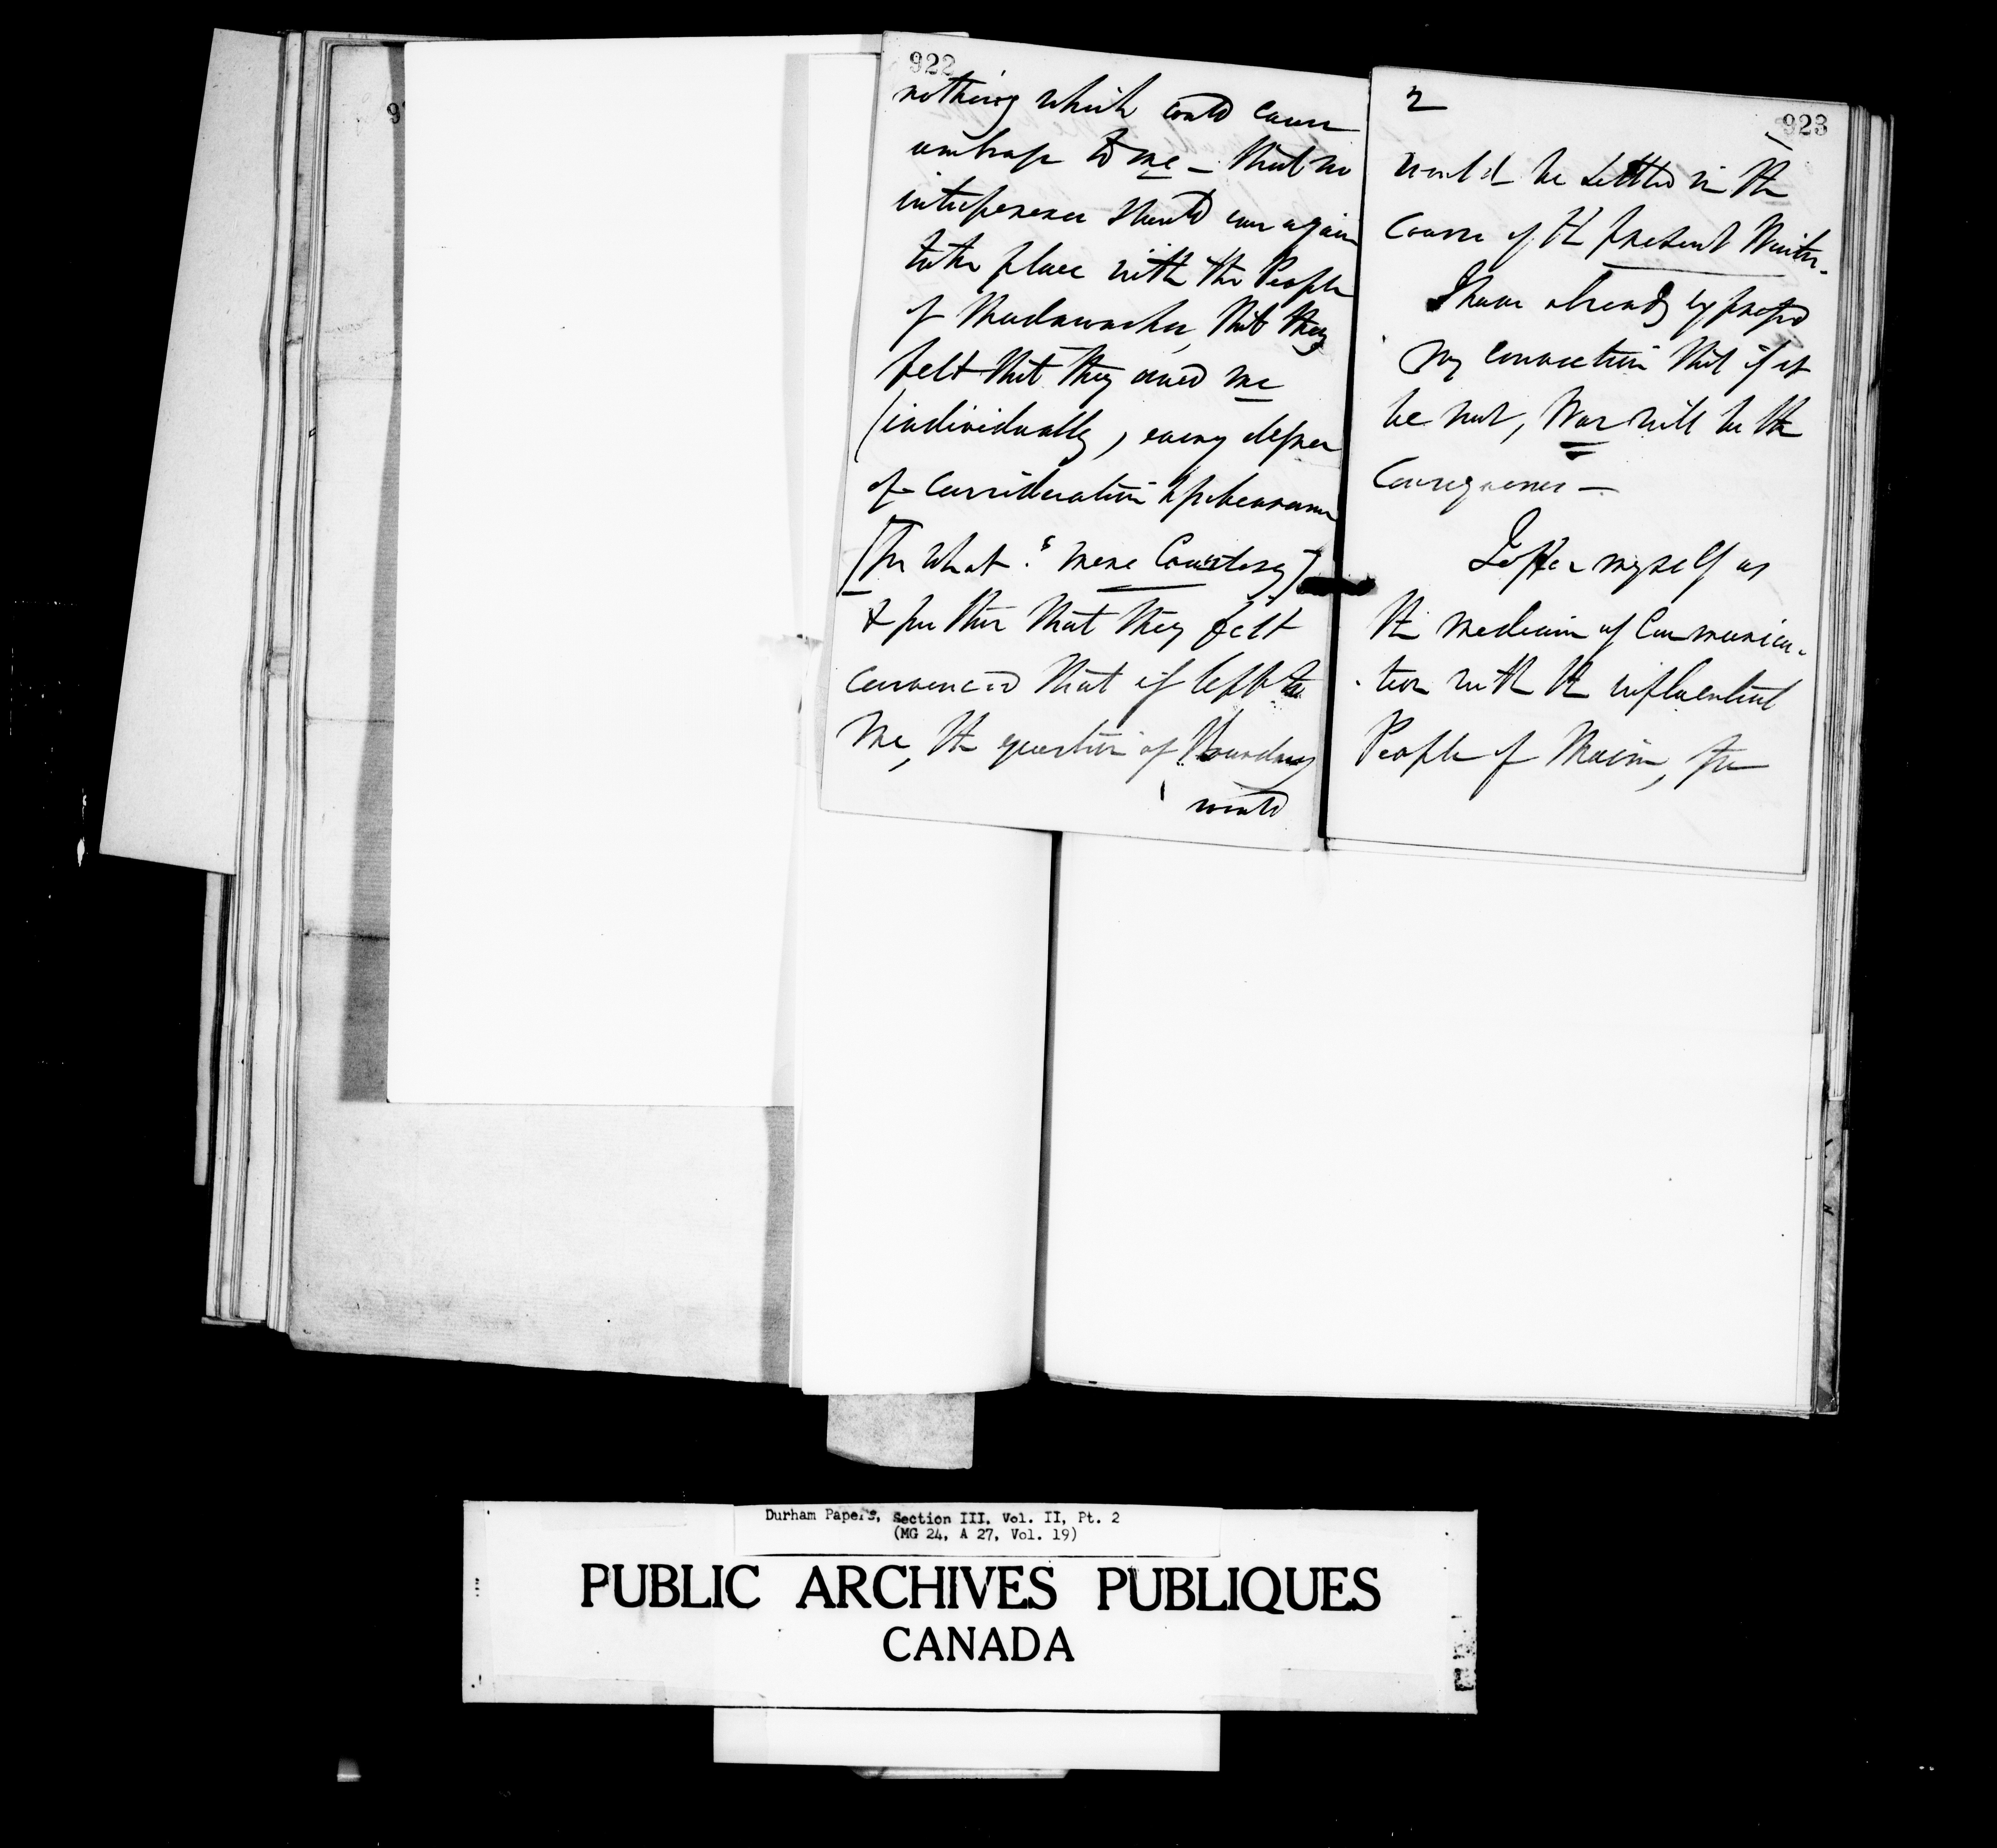 922
nothing which could cause
umbrage to me – that no
interference should ever again
take place with the People
of Madawaska, that they
felt that they owed me
(individually, every degree
of consideration & forbearance
[for what? mere Courtesy]
& further that they felt
convinced that if left to
me, the question of Boundary
would
2
923
would be settled in the
Course of the present Winter.
I have already expressed
my conviction that if it
be not, War will be the
Consequence –
I offer myself as
the medium of Communica-
-tion with the influential
People of Maine, for
Durham Papers, Section III. Vol. II, Pt. 2
(MG 24, A 27, Vol. 19)
PUBLIC ARCHIVES PUBLIQUES
CANADA